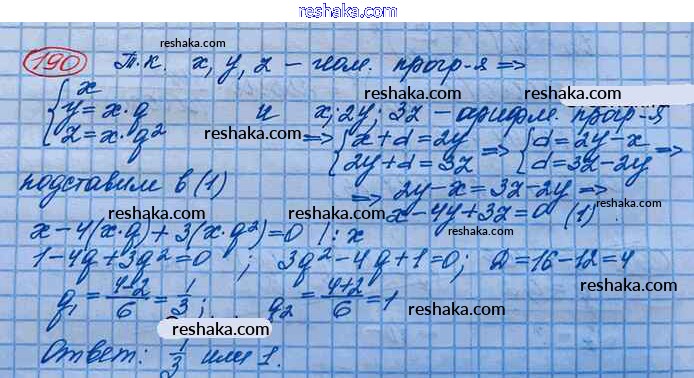 reshaka.com
190 Т.к. x, y, z – геом. прогр-я =>
{ x
y = x·q
z = x·q²
и x; 2y; 3z – арифм. прогр-я
=> { x+d=2y
2y+d=3z => { d=2y-x
d=3z-2y =>
подставим в (1) => 2y-x=3z-2y =>
x-4y+3z=0 (1)
x-4(x·q)+3(x·q²)=0 |:x
1-4q+3q²=0 ; 3q²-4q+1=0; D=16-12=4
q₁ = (4-2)/6 = 1/3; q₂ = (4+2)/6 = 1
Ответ: 1/3 или 1.
reshaka.com
reshaka.com
reshaka.com
reshaka.com
reshaka.com
reshaka.com
reshaka.com
reshaka.com
reshaka.com
reshaka.com
reshaka.com
reshaka.com